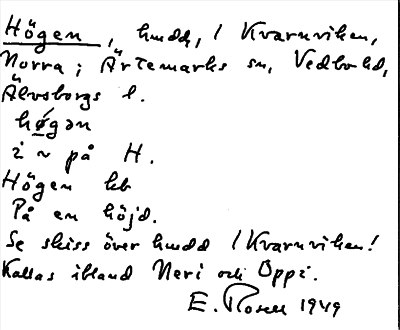 Högen, hmdd, 1 Kvarnviken,
Norra; Ärtemarks sn, Vedbo hd,
Älvsborgs l.
hǿgən
i ~ på H.
Högen lkb
På en höjd.
Se skiss över hmdd 1 Kvarnviken!
Kallas ibland Neri och Oppi.
E. Rosell 1949